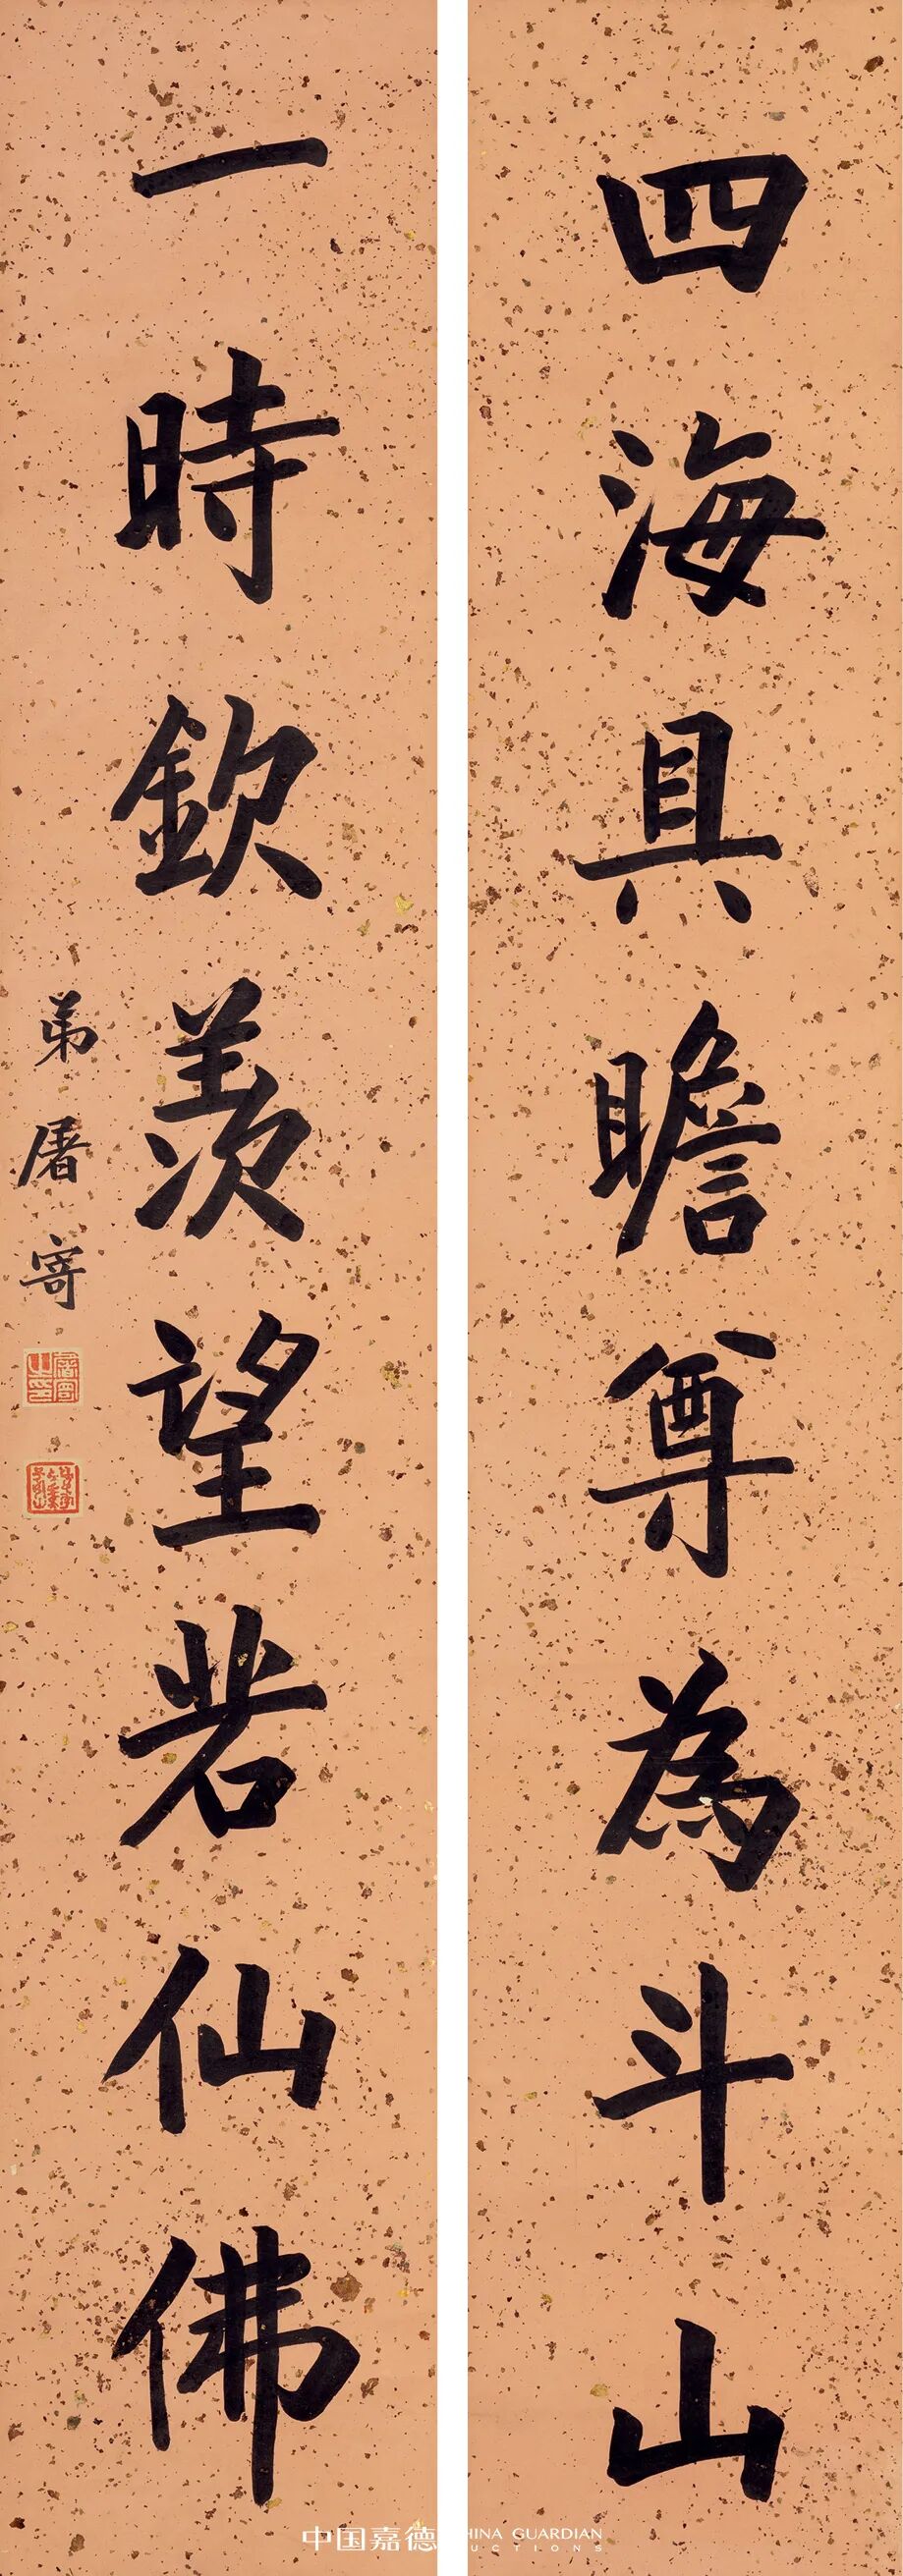 四海具瞻尊為斗山
一時欽羨望若仙佛
弟屠寄
屠寄之印
中国嘉德
CHINA GUARDIAN
AUCTIONS